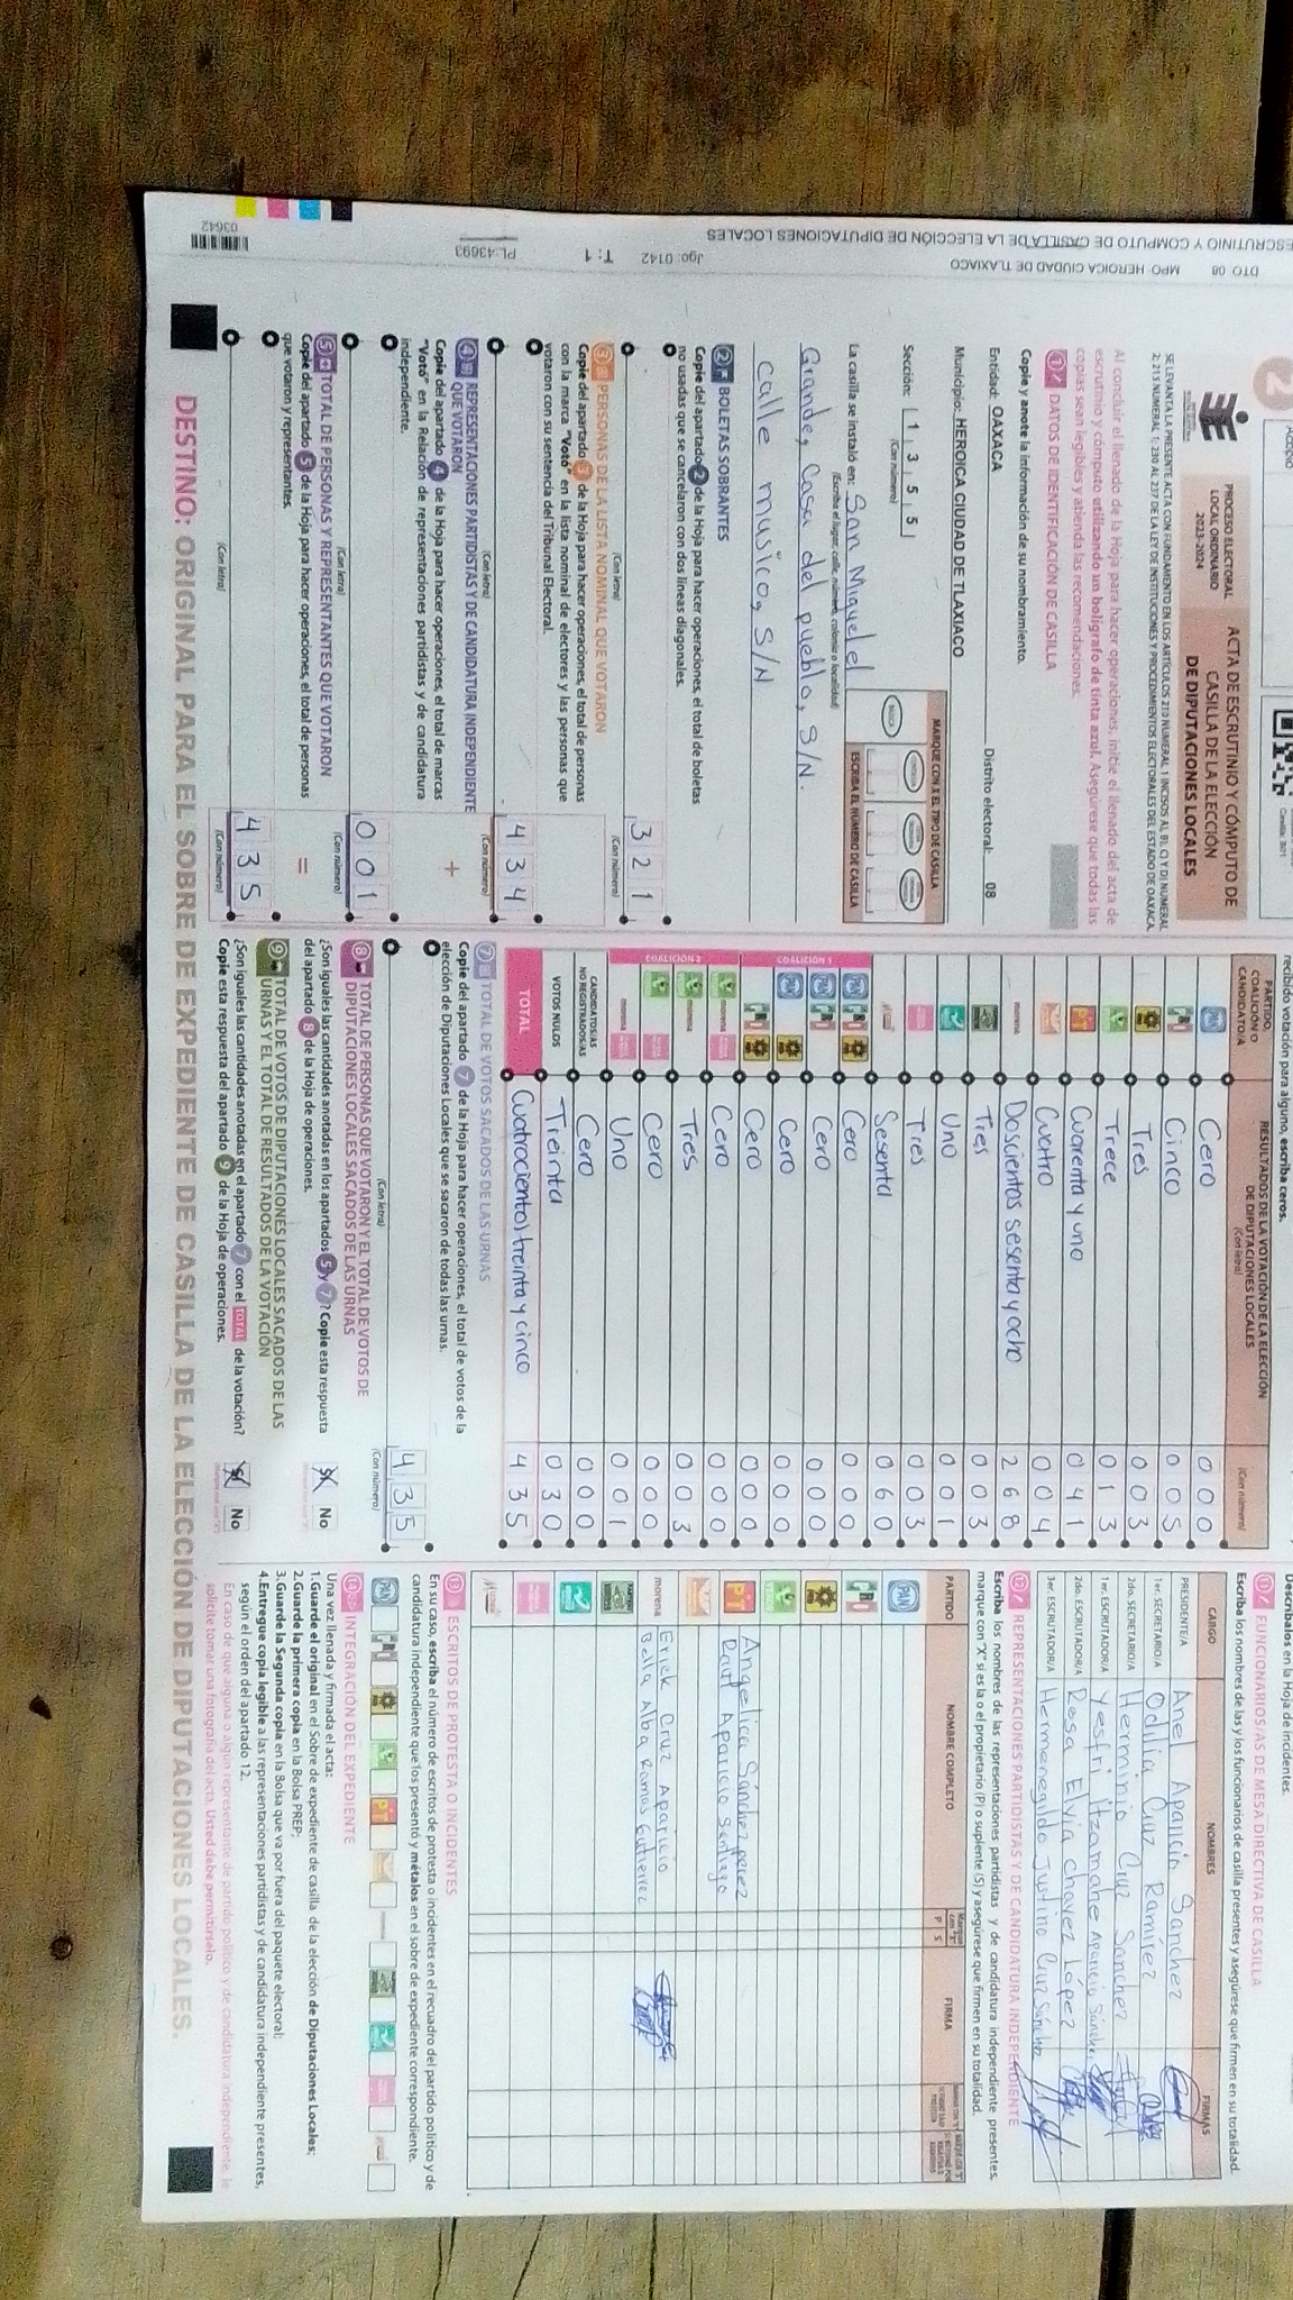 2
PROCESO ELECTORAL
LOCAL ORDINARIO
2023-2024
ACTA DE ESCRUTINIO Y CÓMPUTO DE
CASILLA DE LA ELECCIÓN
DE DIPUTACIONES LOCALES
SE LEVANTA LA PRESENTE ACTA CON FUNDAMENTO EN LOS ARTÍCULOS 210 NUMERAL 1 INCISOS A), B), C) Y D) NUMERAL
2; 215 NUMERAL 1; 230 AL 237 DE LA LEY DE INSTITUCIONES Y PROCEDIMIENTOS ELECTORALES DEL ESTADO DE OAXACA.
Al concluir el llenado de la Hoja para hacer operaciones, inicie el llenado del acta de
escrutinio y cómputo utilizando un bolígrafo de tinta azul. Asegúrese que todas las
copias sean legibles y atienda las recomendaciones.
1 DATOS DE IDENTIFICACIÓN DE CASILLA
Copie y anote la información de su nombramiento.
Entidad: OAXACA Distrito electoral: 08
Municipio: HEROICA CIUDAD DE TLAXIACO
Sección: 1 3 5 5
(Con número)
MARQUE CON X EL TIPO DE CASILLA
ESCRIBA EL NÚMERO DE CASILLA
La casilla se instaló en: San Miguel el
(Escriba el lugar, calle, número, colonia o localidad)
Grande, Casa del pueblo, S/N.
calle musico, S/N
2 BOLETAS SOBRANTES
Copie del apartado 2 de la Hoja para hacer operaciones, el total de boletas
no usadas que se cancelaron con dos líneas diagonales.
3 2 1
(Con letra) (Con número)
3 PERSONAS DE LA LISTA NOMINAL QUE VOTARON
Copie del apartado 3 de la Hoja para hacer operaciones, el total de personas
con la marca "Votó" en la lista nominal de electores y las personas que
votaron con su sentencia del Tribunal Electoral.
4 3 4
(Con letra) (Con número)
4 REPRESENTACIONES PARTIDISTAS Y DE CANDIDATURA INDEPENDIENTE
QUE VOTARON
Copie del apartado 4 de la Hoja para hacer operaciones, el total de marcas
"Votó" en la Relación de representaciones partidistas y de candidatura
independiente.
+
0 0 1
(Con letra) (Con número)
5 TOTAL DE PERSONAS Y REPRESENTANTES QUE VOTARON
Copie del apartado 5 de la Hoja para hacer operaciones, el total de personas
que votaron y representantes.
=
4 3 5
(Con letra) (Con número)
recibido votación para alguno, escriba ceros.
PARTIDO,
COALICIÓN O
CANDIDATO/A
RESULTADOS DE LA VOTACIÓN DE LA ELECCIÓN
DE DIPUTACIONES LOCALES
(Con letra)
(Con número)
PAN Cero 0 0 0
PRI Cinco 0 0 5
Tres 0 0 3
Trece 0 1 3
PT Cuarenta y uno 0 4 1
Cuatro 0 0 4
morena Doscientos sesenta y ocho 2 6 8
Tres 0 0 3
Uno 0 0 1
Tres 0 0 3
Sesenta 0 6 0
COALICIÓN 1
PAN PRI Cero 0 0 0
PAN PRI Cero 0 0 0
PAN Cero 0 0 0
PRI Cero 0 0 0
COALICIÓN 2
morena Cero 0 0 0
morena Tres 0 0 3
Cero 0 0 0
morena Uno 0 0 1
CANDIDATOS/AS
NO REGISTRADOS/AS Cero 0 0 0
VOTOS NULOS Treinta 0 3 0
TOTAL Cuatrocientos treinta y cinco 4 3 5
7 TOTAL DE VOTOS SACADOS DE LAS URNAS
Copie del apartado 7 de la Hoja para hacer operaciones, el total de votos de la
elección de Diputaciones Locales que se sacaron de todas las urnas.
4 3 5
(Con letra) (Con número)
8 TOTAL DE PERSONAS QUE VOTARON Y EL TOTAL DE VOTOS DE
DIPUTACIONES LOCALES SACADOS DE LAS URNAS
¿Son iguales las cantidades anotadas en los apartados 5 y 7? Copie esta respuesta
del apartado 8 de la Hoja de operaciones.
Sí No
9 TOTAL DE VOTOS DE DIPUTACIONES LOCALES SACADOS DE LAS
URNAS Y EL TOTAL DE RESULTADOS DE LA VOTACIÓN
¿Son iguales las cantidades anotadas en el apartado 7 con el TOTAL de la votación?
Copie esta respuesta del apartado 9 de la Hoja de operaciones.
Sí No
Descríbalos en la Hoja de incidentes.
11 FUNCIONARIOS/AS DE MESA DIRECTIVA DE CASILLA
Escriba los nombres de las y los funcionarios de casilla presentes y asegúrese que firmen en su totalidad.
CARGO NOMBRES FIRMAS
PRESIDENTE/A Anel Aparicio Sanchez
1er. SECRETARIO/A Odilia Cruz Ramírez
2do. SECRETARIO/A Herminio Cruz Sanchez
1er. ESCRUTADOR/A Yesfri Itzamahe Aparicio Sánchez
2do. ESCRUTADOR/A Rosa Elvia Chavez López
3er. ESCRUTADOR/A Hermenegildo Justino Cruz Sánchez
12 REPRESENTACIONES PARTIDISTAS Y DE CANDIDATURA INDEPENDIENTE
Escriba los nombres de las representaciones partidistas y de candidatura independiente presentes,
marque con "X" si es la o el propietario (P) o suplente (S) y asegúrese que firmen en su totalidad.
PARTIDO NOMBRE COMPLETO P S FIRMA
PAN
PRI
PT Angelica Sánchez perez
Raul Aparicio Santiago
morena Erick Cruz Aparicio
Bella Alba Ramos Gutierrez
13 ESCRITOS DE PROTESTA O INCIDENTES
En su caso, escriba el número de escritos de protesta o incidentes en el recuadro del partido político y de
candidatura independiente que los presentó y métalos en el sobre de expediente correspondiente.
14 INTEGRACIÓN DEL EXPEDIENTE
Una vez llenada y firmada el acta:
1.Guarde el original en el Sobre de expediente de casilla de la elección de Diputaciones Locales;
2.Guarde la primera copia en la Bolsa PREP;
3.Guarde la Segunda copia en la Bolsa que va por fuera del paquete electoral;
4.Entregue copia legible a las representaciones partidistas y de candidatura independiente presentes,
según el orden del apartado 12.
En caso de que alguna o algún representante de partido político y de candidatura independiente, le
solicite tomar una fotografía del acta, Usted debe permitírselo.
DESTINO: ORIGINAL PARA EL SOBRE DE EXPEDIENTE DE CASILLA DE LA ELECCIÓN DE DIPUTACIONES LOCALES.
ESCRUTINIO Y COMPUTO DE CASILLA DE LA ELECCIÓN DE DIPUTACIONES LOCALES
DTO 08 MPO HEROICA CIUDAD DE TLAXIACO
Jgo: 0142 T: 1 PL:43693
03642